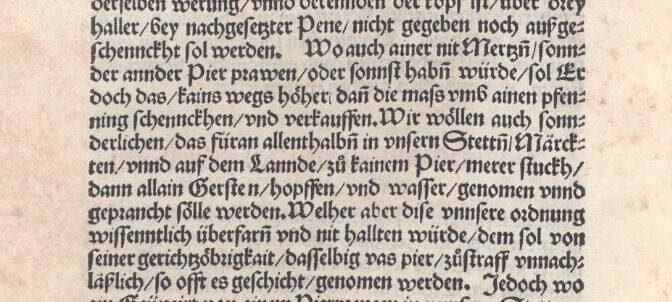 derselben werung/vnnd derenndn der kopf ist/über drey
haller/bey nachgesetzter Pene/nicht gegeben noch außge⸗
schennckht sol werden. Wo auch ainer nit Mertzñ/sonn⸗
der annder Pier prawen/oder sonnst habñ würde/sol Er
doch das/kains wegs höher/dañ die mass vmb ainen pfen⸗
ning schennckhen/vnd verkauffen. Wir wöllen auch sonn⸗
derlichen/das füran allenthalbñ in vnsern Stettñ/Märck⸗
ten/vnnd auf dem Lannde/zů kainem Pier/merer stuckh/
dann allain Gersten/hopffen/vnd wasser/genomen vnnd
gepraucht sölle werden. Welher aber dise vnnsere ordnung
wissenntlich überfarñ vnd nit hallten würde/dem sol von
seiner gerichtzöbrigkait/dasselbig vas pier/zůstraff vnnach⸗
läßlich/so offt es geschicht/genomen werden. Jedoch wo